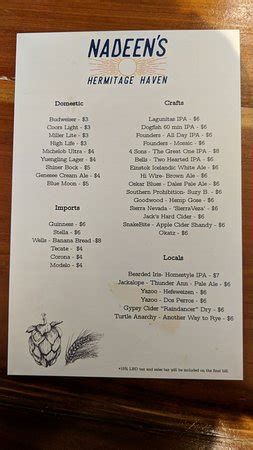 NADEEN'S
HERMITAGE HAVEN
Domestic
Budweiser - $3
Coors Light - $3
Miller Lite - $3
High Life - $3
Michelob Ultra - $4
Yuengling Lager - $4
Shiner Bock - $5
Genesee Cream Ale - $4
Blue Moon - $5
Imports
Guinness - $6
Stella - $6
Wells - Banana Bread - $8
Tecate - $4
Corona - $4
Modelo - $4
Crafts
Lagunitas IPA - $6
Dogfish 60 min IPA - $6
Founders - All Day IPA - $6
Founders - Mosaic - $6
4 Sons - The Great One IPA - $6
Bells - Two Hearted IPA - $6
Einstok Icelandic White Ale - $6
Hi Wire - Brown Ale - $6
Oskar Blues - Dales Pale Ale - $6
Southern Prohibition - Suzy B. - $6
Goodwood - Hemp Gose - $6
Sierra Nevada - "SierraVeza" - $6
Jack's Hard Cider - $6
SnakeBite - Apple Cider Shandy - $6
- $6
Locals
Bearded Iris - Homestyle IPA - $7
Jackalope - Thunder Ann - Pale Ale - $6
Yazoo - Hefeweizen - $6
Yazoo - Dos Perros - $6
Gypsy Cider "Raindancer" Dry - $6
Turtle Anarchy - Another Way to Rye - $6
tax and sales tax will be included on the final bill